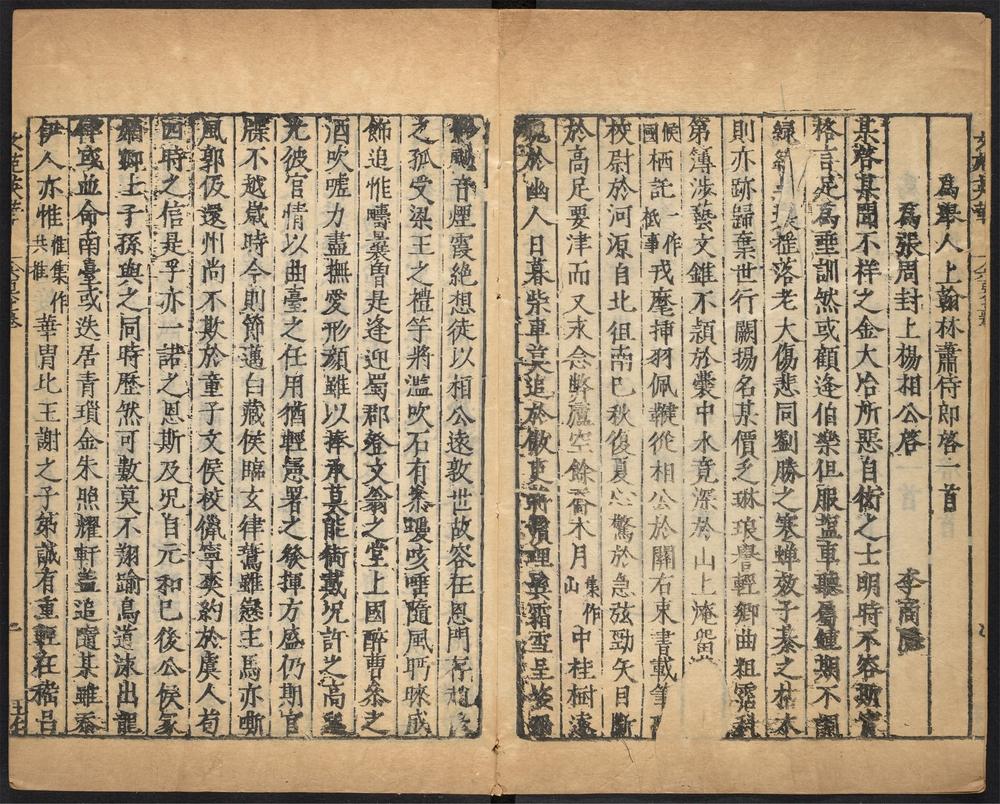 為舉人上翰林蕭侍郎啓一首
為張周封上楊相公啓 李商隱
某啓某聞不祥之金大冶所惡自衒之士明時不容斯實
格言足為垂訓然或顧逢伯樂但服塩車聽屬鍾期不關
推落老大傷悲同劉勝之寒蟬效子綦之枯木
則亦跡歸棄世行闕揚名某價乏琳琅譽輕鄉曲粗霑科
第薄涉藝文錐不穎於囊中水竟深於山上淹留
候國栖託一作柢事戎麾揷羽佩鞬從相公於關右束書載筆
校尉於河源自北徂南已秋復夏心驚於急弦勁矢目斷
於高足要津而又永念弊廬空餘喬木月集作山中桂樹遂
於幽人日暮柴車莫追於傲吏將鬢理與霜雪呈姿
音煙霞絶想徒以相公遠敦世故容在恩門存趙
之孤受梁王之禮等將濫吹石有羣瓊咳唾隨風眄睞成
飾追惟疇曩曽是逢迎蜀郡登文翁之堂上國醉曹叅之
酒吹噓力盡撫愛形顔雖以捧承莫能銜戴况許之高選
光彼官情以曲臺之任用猶輕憲署之發揮方盛仍期官
牒不越歲時今則節邁白藏候臨玄律駑雖戀主馬亦嘶
風郭伋還州尚不欺於童子文侯校獵寧爽約於虞人苟
四時之信是孚亦一諾之恩斯及况自元和已後公侯冢
嗣卿士子孫與之同時歷然可數莫不翔踰鳥道泳出龍
津或並命南臺或迭居青瑣金朱照耀軒蓋追隨某雖忝
伊人亦惟惟集作共推華胄比王謝之子弟誠有重輕在嵇吕